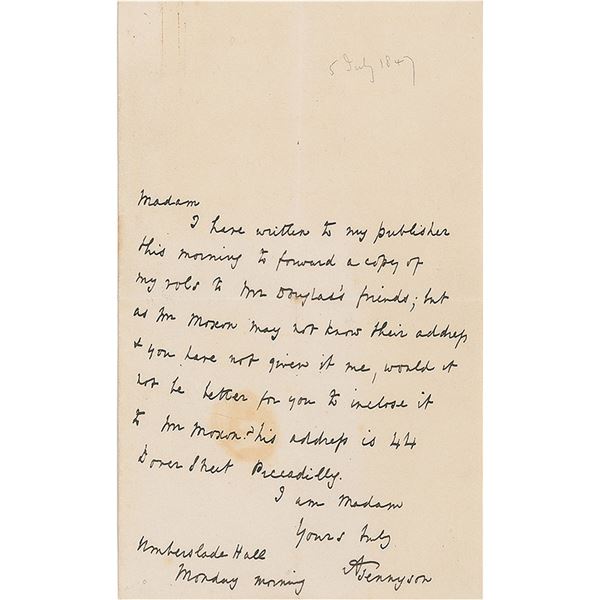 5 July 1847
Madam
I have written to my publisher
this morning to forward a copy of
my vols to Mr Douglas's friends; but
as Mr Moxon may not know their address
& you have not given it me, would it
not be better for you to inclose it
to Mr Moxon? his address is 44
Dover Street Piccadilly.
I am Madam
Yours truly
ATennyson
Umberslade Hall
Monday morning